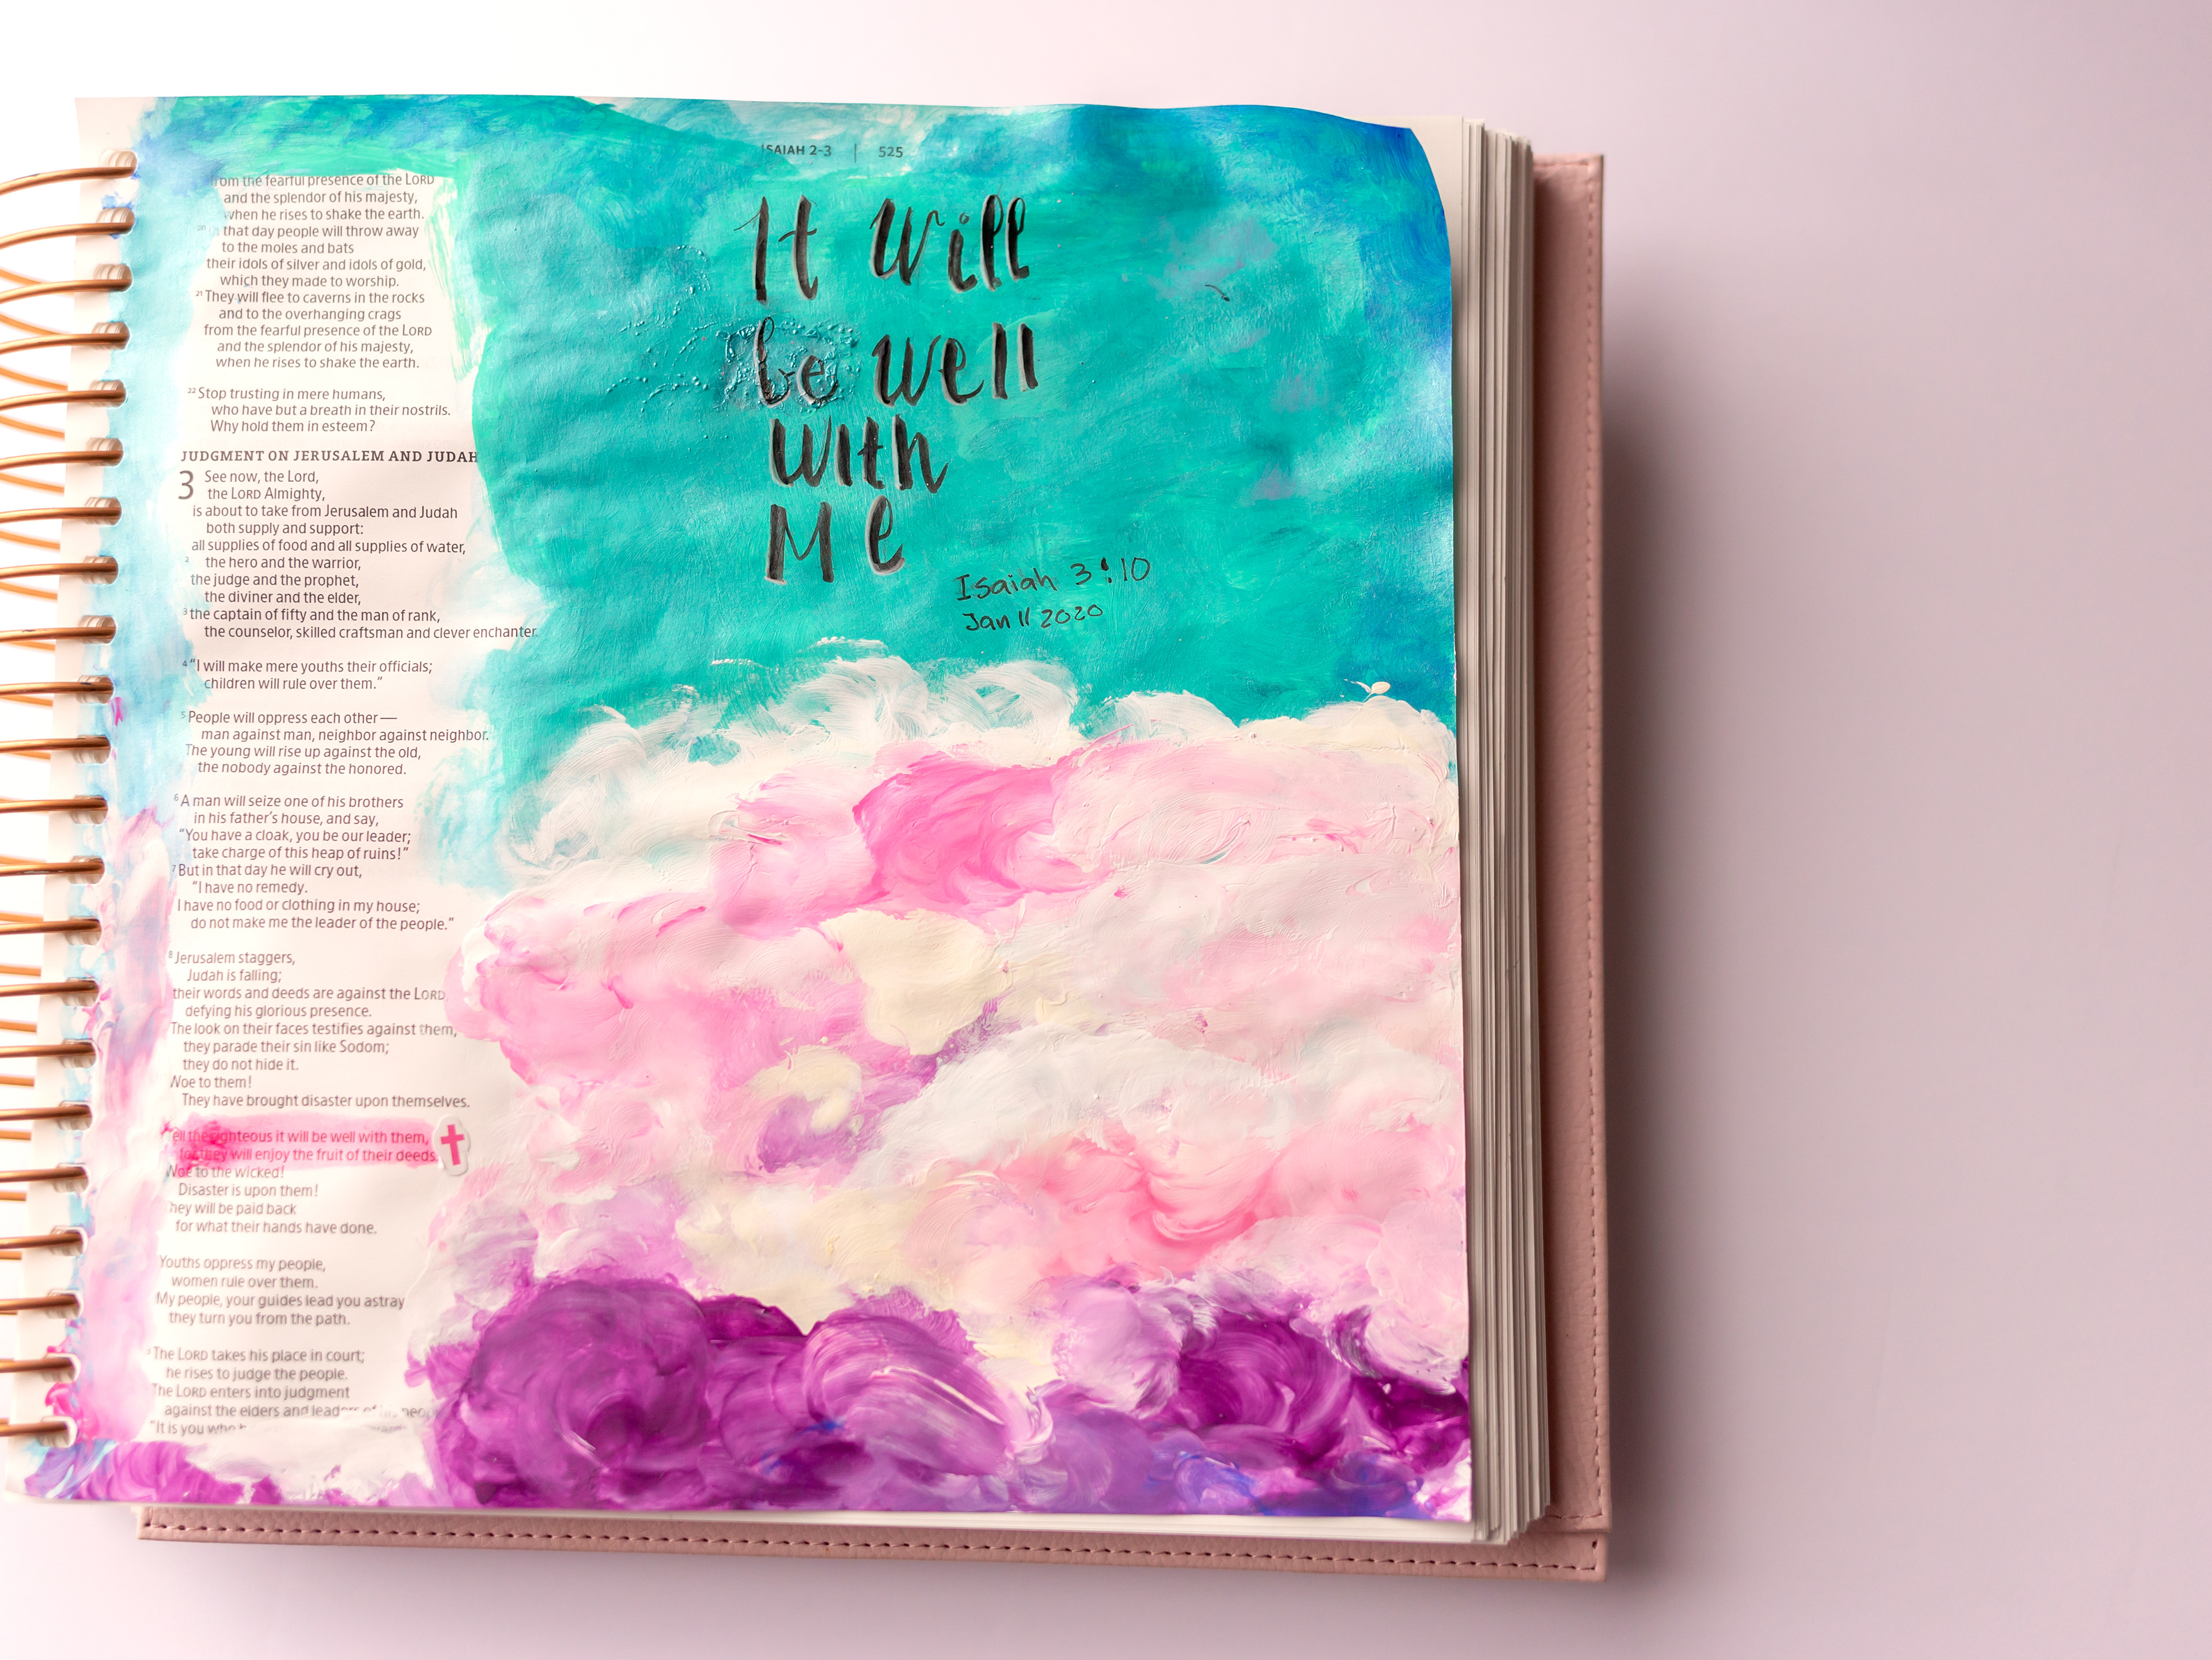 ISAIAH 2-3 | 525
from the fearful presence of the LORD
and the splendor of his majesty,
when he rises to shake the earth.
20 In that day people will throw away
to the moles and bats
their idols of silver and idols of gold,
which they made to worship.
21 They will flee to caverns in the rocks
and to the overhanging crags
from the fearful presence of the LORD
and the splendor of his majesty,
when he rises to shake the earth.
22 Stop trusting in mere humans,
who have but a breath in their nostrils.
Why hold them in esteem?
JUDGMENT ON JERUSALEM AND JUDAH
3 See now, the Lord,
the LORD Almighty,
is about to take from Jerusalem and Judah
both supply and support:
all supplies of food and all supplies of water,
2 the hero and the warrior,
the judge and the prophet,
the diviner and the elder,
3 the captain of fifty and the man of rank,
the counselor, skilled craftsman and clever enchanter.
4 “I will make mere youths their officials;
children will rule over them.”
5 People will oppress each other—
man against man, neighbor against neighbor.
The young will rise up against the old,
the nobody against the honored.
6 A man will seize one of his brothers
in his father’s house, and say,
“You have a cloak, you be our leader;
take charge of this heap of ruins!”
7 But in that day he will cry out,
“I have no remedy.
I have no food or clothing in my house;
do not make me the leader of the people.”
8 Jerusalem staggers,
Judah is falling;
their words and deeds are against the LORD,
defying his glorious presence.
The look on their faces testifies against them;
they parade their sin like Sodom;
they do not hide it.
Woe to them!
They have brought disaster upon themselves.
Tell the righteous it will be well with them,
for they will enjoy the fruit of their deeds.
Woe to the wicked!
Disaster is upon them!
They will be paid back
for what their hands have done.
Youths oppress my people,
women rule over them.
My people, your guides lead you astray
they turn you from the path.
The LORD takes his place in court;
he rises to judge the people.
The LORD enters into judgment
against the elders and leaders of his people
“It is you who
It will
be well
with
Me
Isaiah 3:10
Jan 11 2020